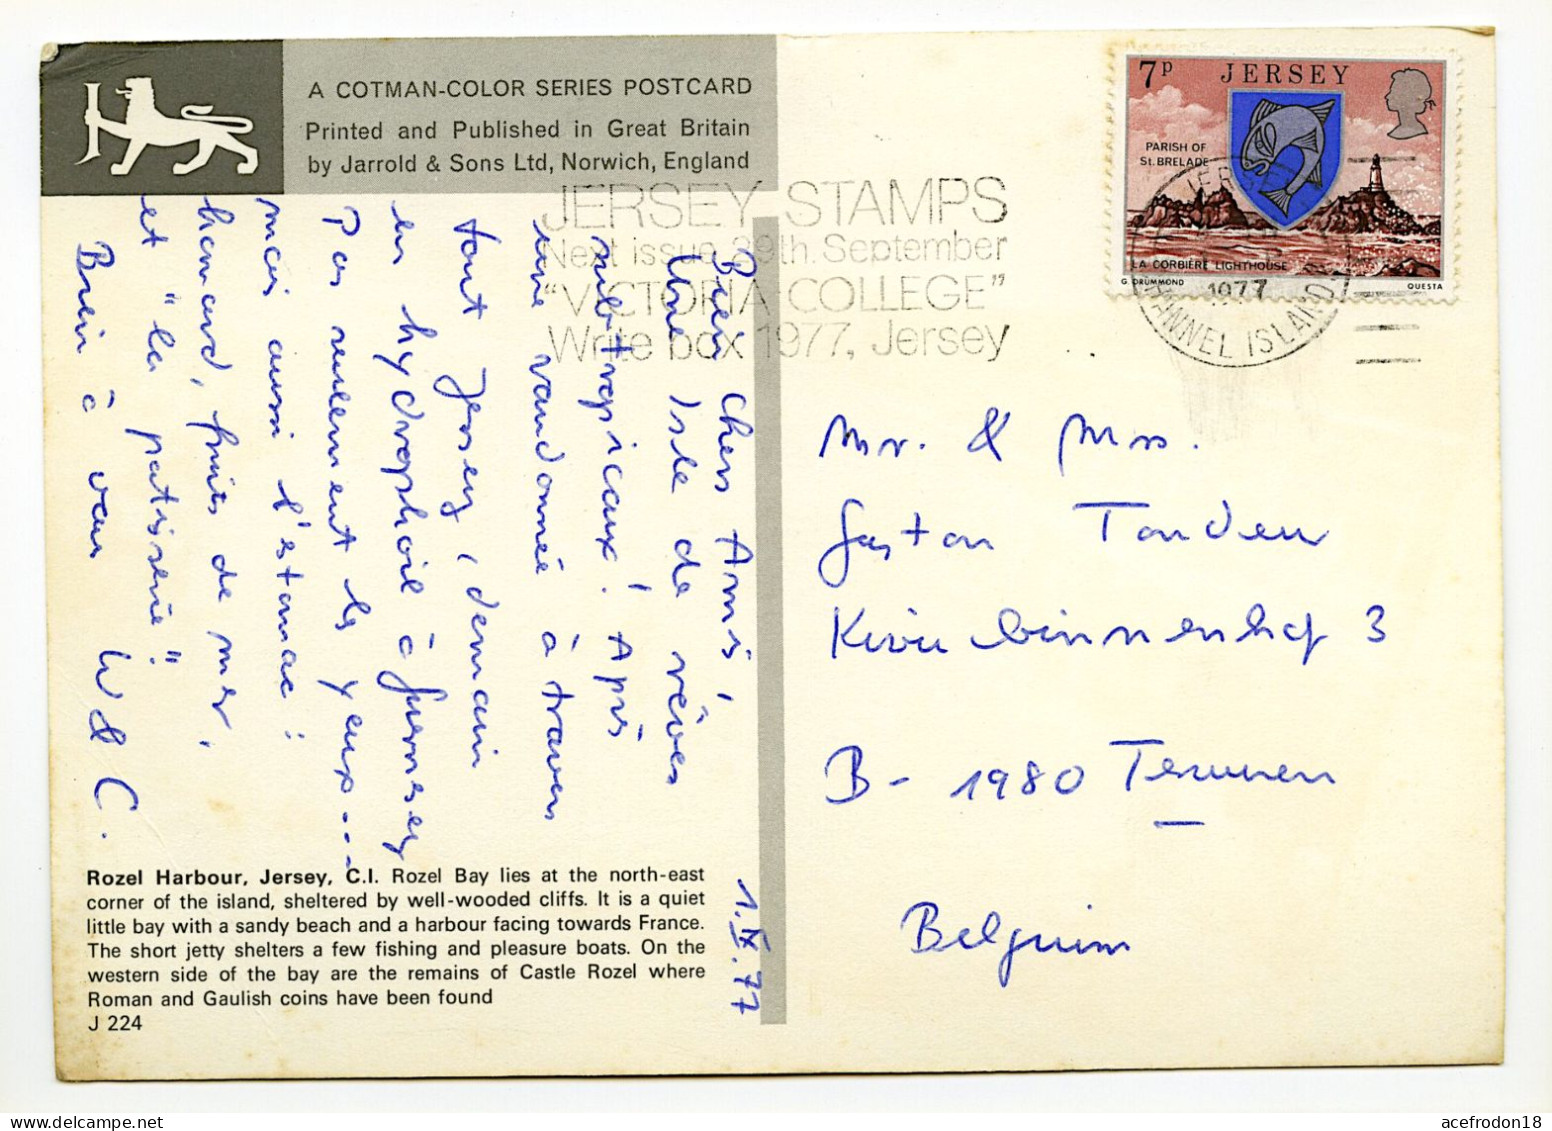 A COTMAN-COLOR SERIES POSTCARD
Printed and Published in Great Britain
by Jarrold & Sons Ltd, Norwich, England
JERSEY STAMPS
Next issue 29th September
"VICTORIA COLLEGE"
Write box 1977, Jersey
7p JERSEY
PARISH OF
St. BRELADE
LA CORBIÈRE LIGHTHOUSE
G. DRUMMOND QUESTA
JERSEY
1977
CHANNEL ISLANDS
1.IX.77
Bien Chers Amis,
Une Isle de rêves
subtropicaux! Après
une randonnée à travers
tout Jersey, demain
en hydrophoil à Guernesey
Pas seulement les yeux...
mais aussi l'estomac:
homard, fruits de mer,
et "la patisserie"
Bien à vous W & C.
Mr. & Mrs.
Gaston
Kivu binnenhof 3
B- 1980
Belgium
Rozel Harbour, Jersey, C.I. Rozel Bay lies at the north-east
corner of the island, sheltered by well-wooded cliffs. It is a quiet
little bay with a sandy beach and a harbour facing towards France.
The short jetty shelters a few fishing and pleasure boats. On the
western side of the bay are the remains of Castle Rozel where
Roman and Gaulish coins have been found
J 224
acefrodon18